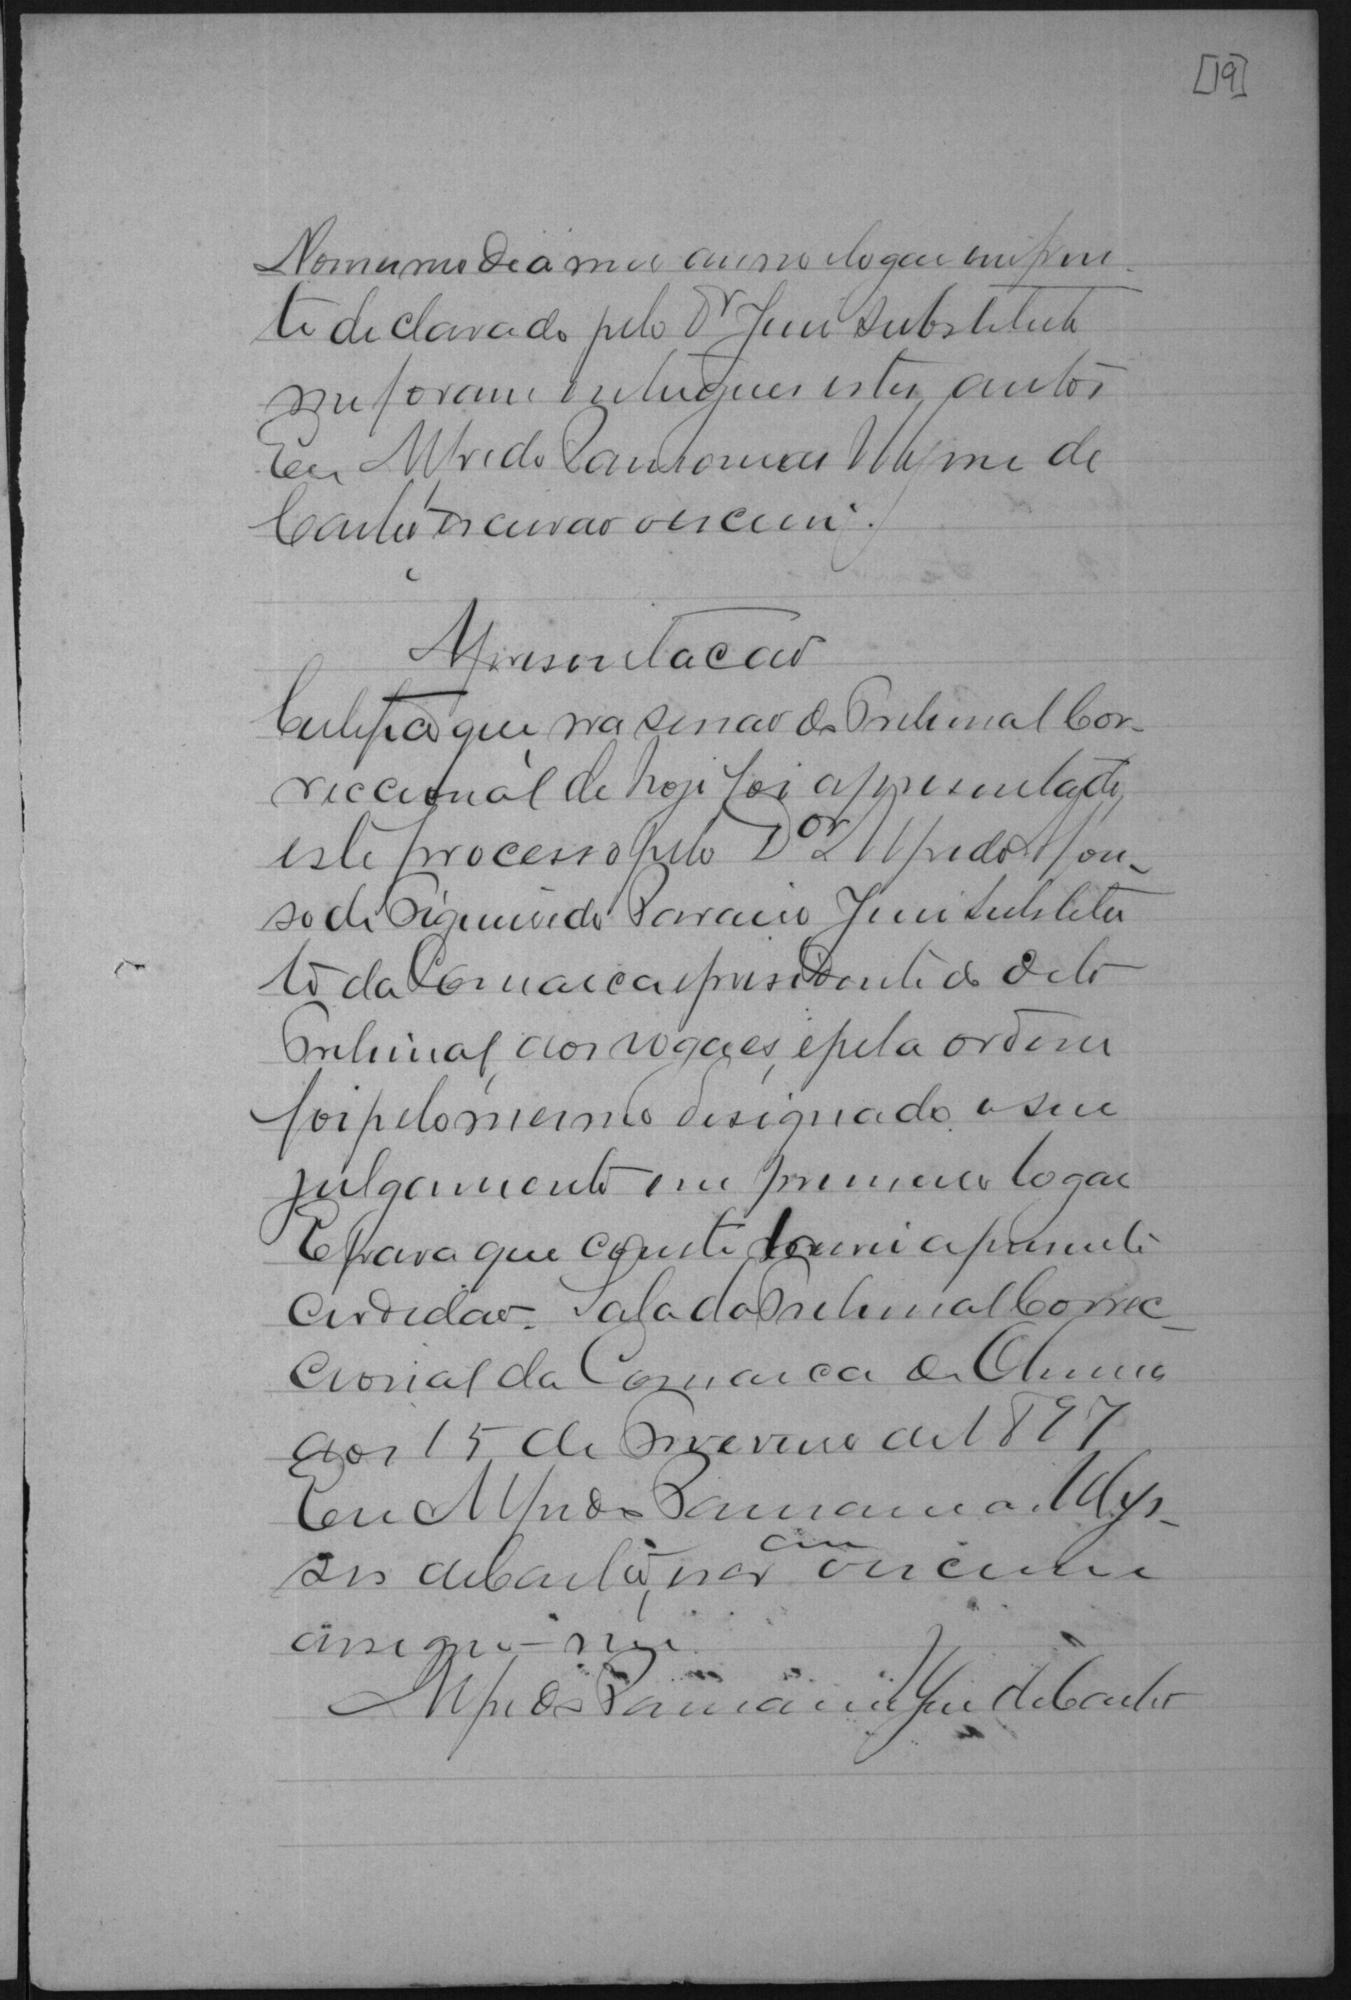 [19]
No mesmo dia mez anno e logar supra
te declarado pelo Dr Juiz substituto
me foram entregues estes autos
Eu Alfredo Ulysses de
Castro escrivão o escrevi.
Apresentacão
Certifico que na sessão do Tribunal Cor-
reccional de hoje foi appresentado
este processo pelo Dor Alfredo Affon-
so de Figueiredo Juiz substitu
to da Comarca e presidente do dito
Tribunal, aos vogaes, e pela ordem
foi pelo mesmo designado o seu
julgamento em primeiro logar
E para que conste lavrei a presente
certidão. Sala do Tribunal Correc-
cional da Comarca de
aos 15 de Fevereiro de 1897
Eu Alfredo Ulys-
ses de Castro, escrivão o escrevi e
assigno-me
Alfredo de Castro